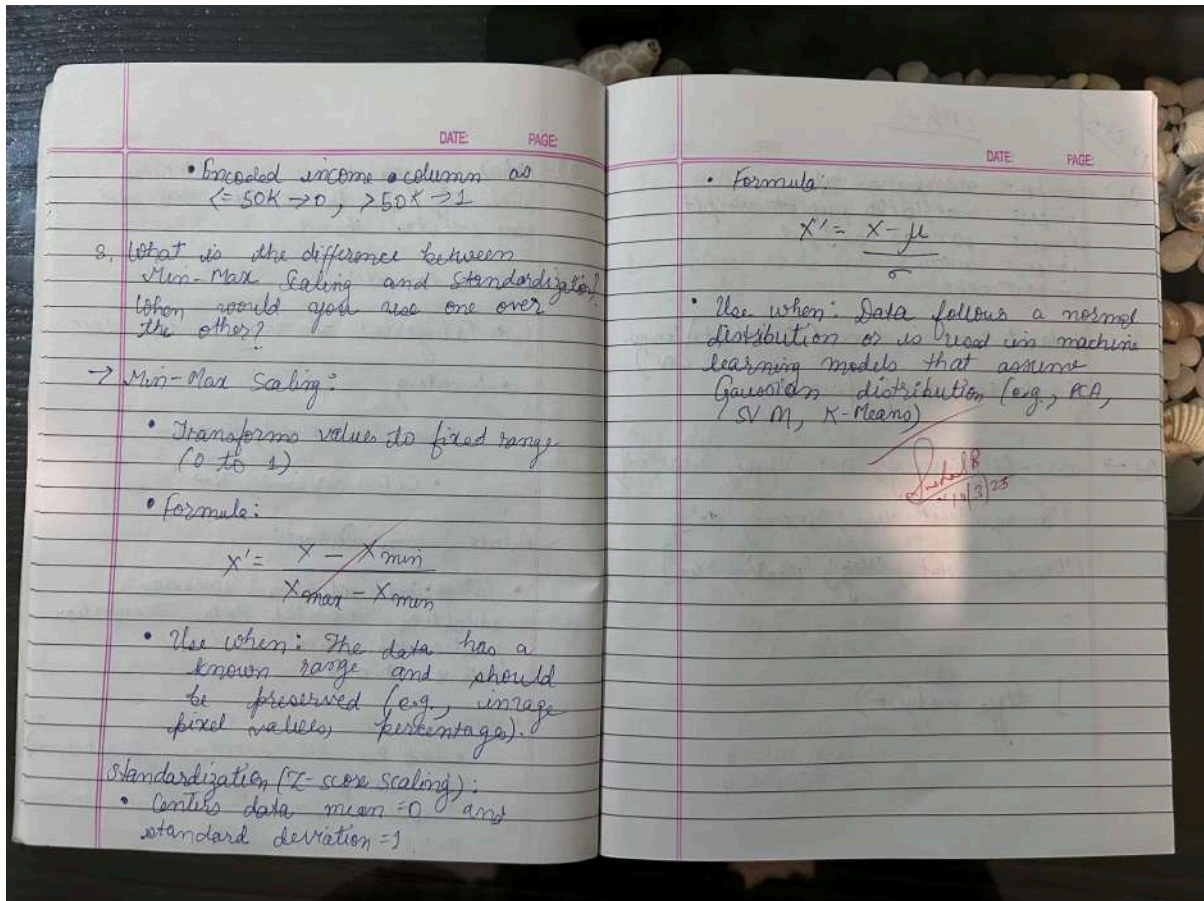 DATE: PAGE:
• Encoded income column as
<= 50K → 0, > 50K → 1
3. What is the difference between
Min-Max Scaling and Standardization?
When would you use one over
the other?
→ Min-Max Scaling:
• Transforms values to fixed range
(0 to 1)
• Formula:
X' = X - Xmin
Xmax - Xmin
• Use when: The data has a
known range and should
be preserved (e.g., image
pixel values, percentage).
Standardization (Z-score scaling):
• Centers data mean = 0 and
standard deviation = 1
DATE: PAGE:
• Formula:
X' = X - μ
σ
• Use when: Data follows a normal
distribution or is used in machine
learning models that assume
Gaussian distribution (e.g., PCA,
SVM, K-Means)